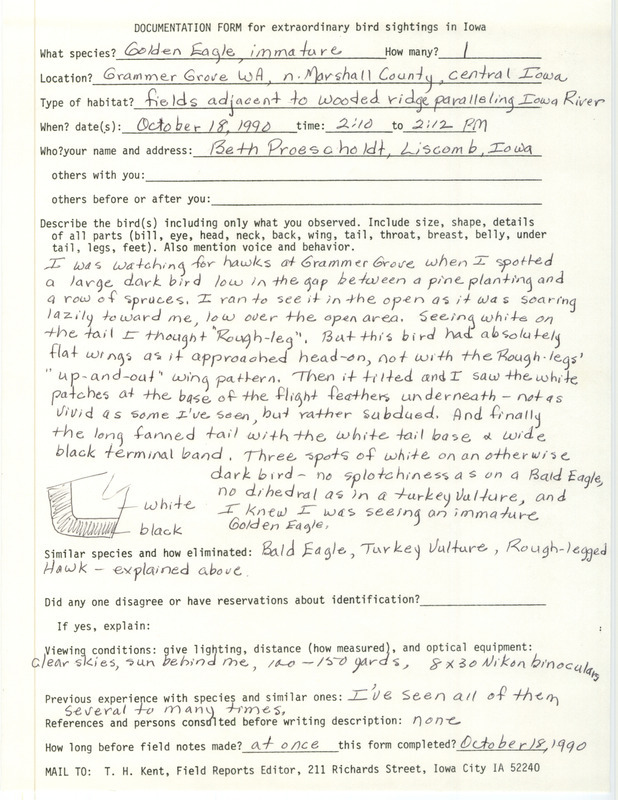 DOCUMENTATION FORM for extraordinary bird sightings in Iowa
What species? Golden Eagle, immature How many? 1
Location? Grammer Grove WA, n. Marshall County, central Iowa
Type of habitat? fields adjacent to wooded ridge paralleling Iowa River
When? date(s): October 18, 1990 time: 2:10 to 2:12 PM
Who?your name and address: Beth Proescholdt, Liscomb, Iowa
others with you:
others before or after you:
Describe the bird(s) including only what you observed. Include size, shape, details
of all parts (bill, eye, head, neck, back, wing, tail, throat, breast, belly, under
tail, legs, feet). Also mention voice and behavior.
I was watching for hawks at Grammer Grove when I spotted
a large dark bird low in the gap between a pine planting and
a row of spruces. I ran to see it in the open as it was soaring
lazily toward me, low over the open area. Seeing white on
the tail I thought "Rough-leg". But this bird had absolutely
flat wings as it approached head-on, not with the Rough-legs'
"up-and-out" wing pattern. Then it tilted and I saw the white
patches at the base of the flight feathers underneath - not as
vivid as some I've seen, but rather subdued. And finally
the long fanned tail with the white tail base & wide
black terminal band. Three spots of white on an otherwise
dark bird - no splotchiness as on a Bald Eagle,
no dihedral as in a turkey vulture, and
I knew I was seeing an immature
Golden Eagle.
white
black
Similar species and how eliminated: Bald Eagle, Turkey Vulture, Rough-legged
Hawk - explained above.
Did any one disagree or have reservations about identification?
If yes, explain:
Viewing conditions: give lighting, distance (how measured), and optical equipment:
clear skies, sun behind me, 100-150 yards, 8x30 Nikon binoculars
Previous experience with species and similar ones: I've seen all of them
several to many times.
References and persons consulted before writing description: none
How long before field notes made? at once this form completed? October 18, 1990
MAIL TO: T. H. Kent, Field Reports Editor, 211 Richards Street, Iowa City IA 52240